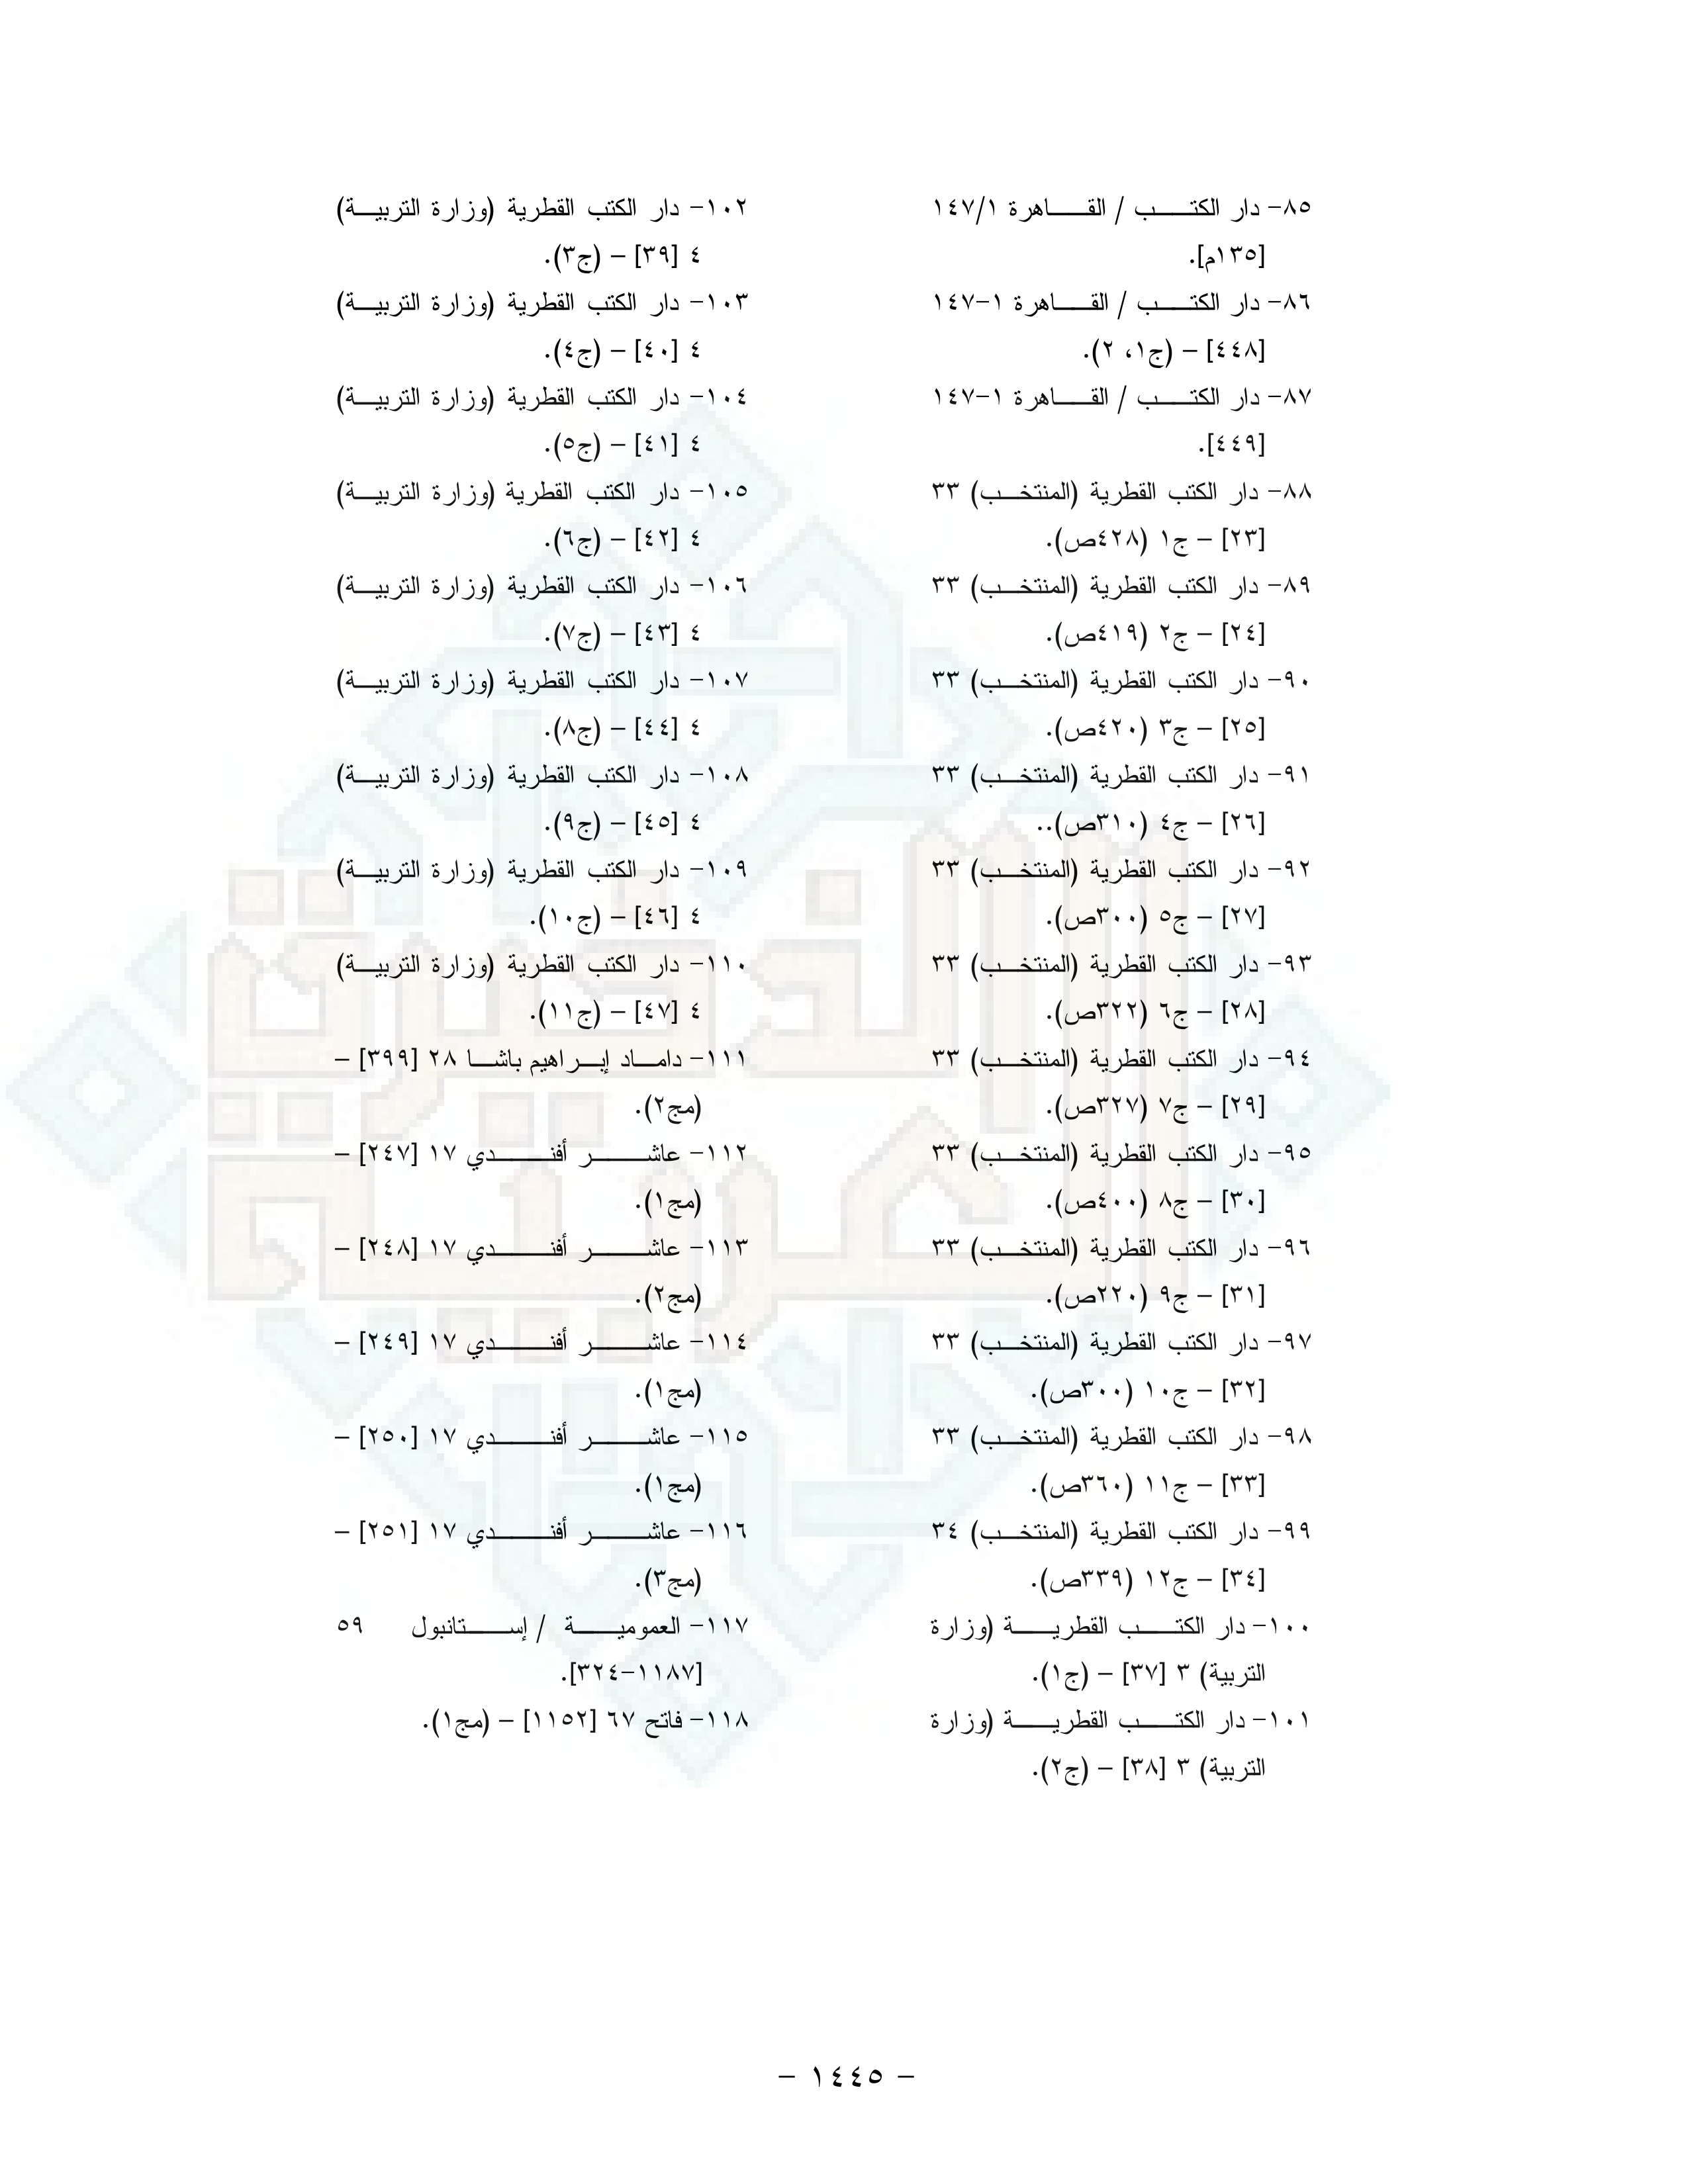 ٨٥- دار الكتب / القاهرة ١٤٧/١
[١٣٥م].
٨٦- دار الكتب / القاهرة ١-١٤٧
[٤٤٨] – (ج١، ٢).
٨٧- دار الكتب / القاهرة ١-١٤٧
[٤٤٩].
٨٨- دار الكتب القطرية (المنتخب) ٣٣
[٢٣] – ج١ (٤٢٨ص).
٨٩- دار الكتب القطرية (المنتخب) ٣٣
[٢٤] – ج٢ (٤١٩ص).
٩٠- دار الكتب القطرية (المنتخب) ٣٣
[٢٥] – ج٣ (٤٢٠ص).
٩١- دار الكتب القطرية (المنتخب) ٣٣
[٢٦] – ج٤ (٣١٠ص)..
٩٢- دار الكتب القطرية (المنتخب) ٣٣
[٢٧] – ج٥ (٣٠٠ص).
٩٣- دار الكتب القطرية (المنتخب) ٣٣
[٢٨] – ج٦ (٣٢٢ص).
٩٤- دار الكتب القطرية (المنتخب) ٣٣
[٢٩] – ج٧ (٣٢٧ص).
٩٥- دار الكتب القطرية (المنتخب) ٣٣
[٣٠] – ج٨ (٤٠٠ص).
٩٦- دار الكتب القطرية (المنتخب) ٣٣
[٣١] – ج٩ (٢٢٠ص).
٩٧- دار الكتب القطرية (المنتخب) ٣٣
[٣٢] – ج١٠ (٣٠٠ص).
٩٨- دار الكتب القطرية (المنتخب) ٣٣
[٣٣] – ج١١ (٣٦٠ص).
٩٩- دار الكتب القطرية (المنتخب) ٣٤
[٣٤] – ج١٢ (٣٣٩ص).
١٠٠- دار الكتب القطرية (وزارة
التربية) ٣ [٣٧] – (ج١).
١٠١- دار الكتب القطرية (وزارة
التربية) ٣ [٣٨] – (ج٢).
١٠٢- دار الكتب القطرية (وزارة التربية)
٤ [٣٩] – (ج٣).
١٠٣- دار الكتب القطرية (وزارة التربية)
٤ [٤٠] – (ج٤).
١٠٤- دار الكتب القطرية (وزارة التربية)
٤ [٤١] – (ج٥).
١٠٥- دار الكتب القطرية (وزارة التربية)
٤ [٤٢] – (ج٦).
١٠٦- دار الكتب القطرية (وزارة التربية)
٤ [٤٣] – (ج٧).
١٠٧- دار الكتب القطرية (وزارة التربية)
٤ [٤٤] – (ج٨).
١٠٨- دار الكتب القطرية (وزارة التربية)
٤ [٤٥] – (ج٩).
١٠٩- دار الكتب القطرية (وزارة التربية)
٤ [٤٦] – (ج١٠).
١١٠- دار الكتب القطرية (وزارة التربية)
٤ [٤٧] – (ج١١).
١١١- داماد إبراهيم باشا ٢٨ [٣٩٩] –
(مج٢).
١١٢- عاشر أفندي ١٧ [٢٤٧] –
(مج١).
١١٣- عاشر أفندي ١٧ [٢٤٨] –
(مج٢).
١١٤- عاشر أفندي ١٧ [٢٤٩] –
(مج١).
١١٥- عاشر أفندي ١٧ [٢٥٠] –
(مج١).
١١٦- عاشر أفندي ١٧ [٢٥١] –
(مج٣).
١١٧- العمومية / إستانبول ٥٩
[١١٨٧-٣٢٤].
١١٨- فاتح ٦٧ [١١٥٢] – (مج١).
الذخيرة
العربية
– ١٤٤٥ –